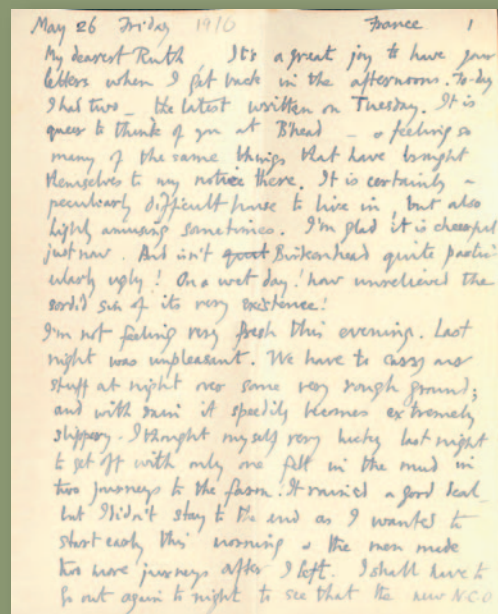 May 26 Friday 1916 France 1
My dearest Ruth It's a great joy to have your
letters when I get back in the afternoons. To-day
I had two – the latest written on Tuesday. It is
queer to think of you at B'head – & feeling so
many of the same things that have brought
themselves to my notice there. It is certainly a
peculiarly difficult house to live in but also
highly amusing sometimes. I'm glad it is cheerful
just now. But isn't quit Birkenhead quite partic-
ularly ugly! On a wet day! how unrelieved the
sordid of its very existence!
I'm not feeling very fresh this evening. Last
night was unpleasant. We have to carry our
stuff at night over some very rough ground;
and with rain it speedily becomes extremely
slippery. I thought myself very lucky last night
to get off with only one fall in the mud in
two journeys to the farm. It rained a good deal
but I didn't stay to the end as I wanted to
start early this morning & the men made
two more journeys after I left. I shall have to
go out again to night to see that the new N.C.O